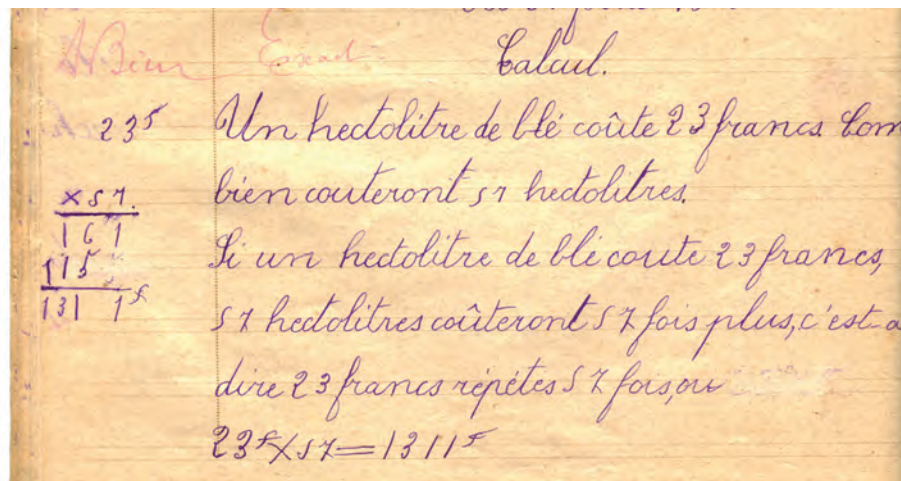 Bien Exact
Calcul.
23f Un hectolitre de blé coûte 23 francs. Com
bien couteront 57 hectolitres.
×57.
161
115
1311f
Si un hectolitre de blé coute 23 francs,
57 hectolitres coûteront 57 fois plus, c'est a
dire 23 francs répétes 57 fois, ou
23f×57=1311f